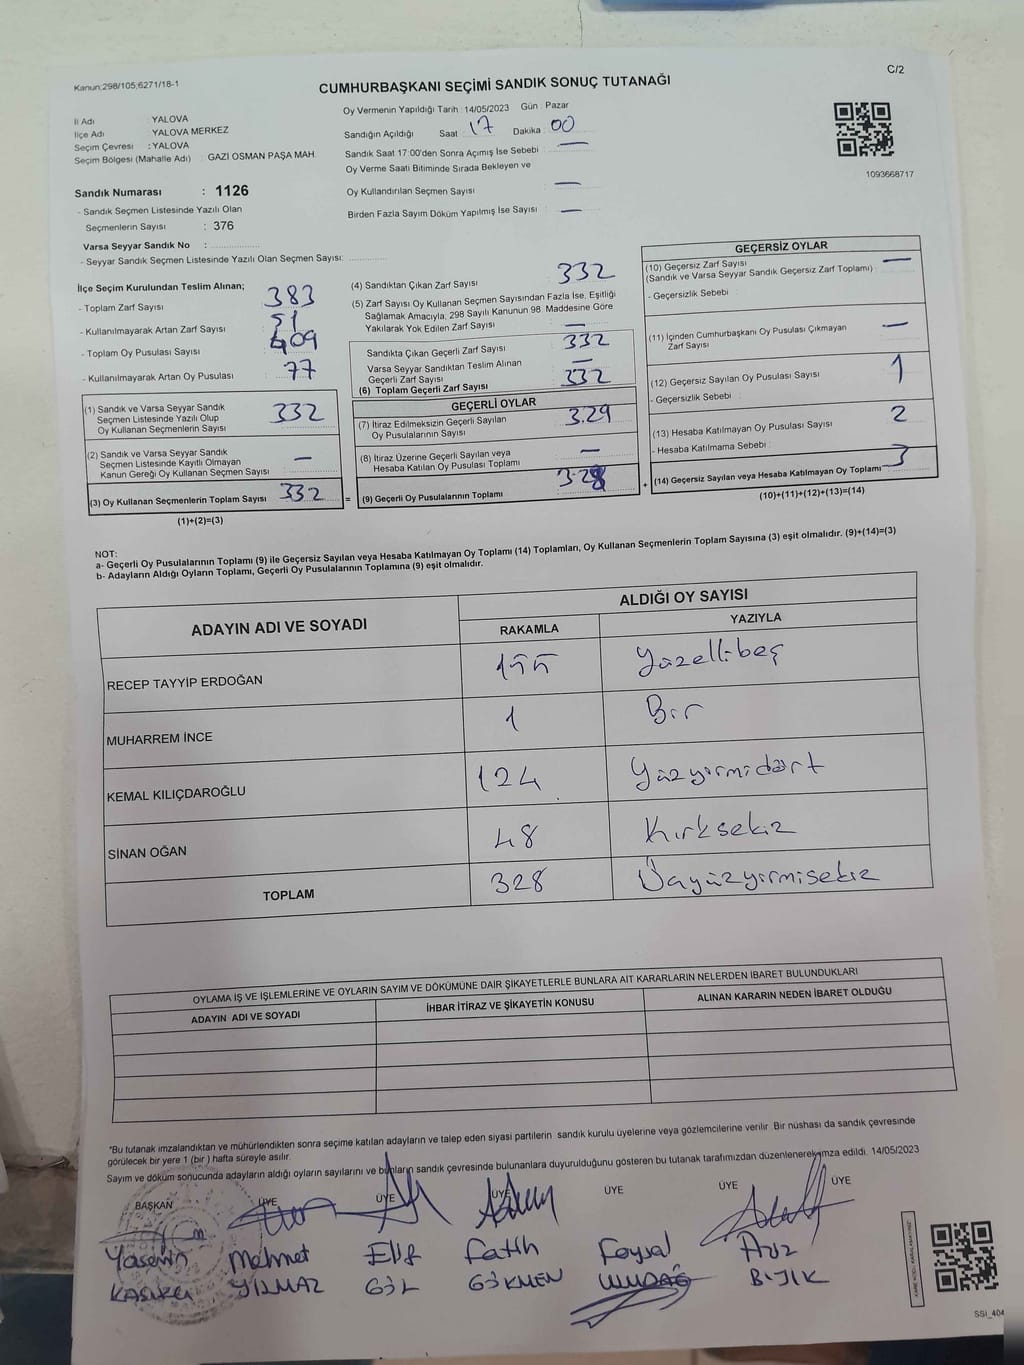 Kanun:298/105;6271/18-1
C/2
CUMHURBAŞKANI SEÇİMİ SANDIK SONUÇ TUTANAĞI
İl Adı : YALOVA
İlçe Adı : YALOVA MERKEZ
Seçim Çevresi : YALOVA
Seçim Bölgesi (Mahalle Adı) : GAZİ OSMAN PAŞA MAH.
Sandık Numarası : 1126
- Sandık Seçmen Listesinde Yazılı Olan
Seçmenlerin Sayısı : 376
Varsa Seyyar Sandık No :
- Seyyar Sandık Seçmen Listesinde Yazılı Olan Seçmen Sayısı:
Oy Vermenin Yapıldığı Tarih : 14/05/2023 Gün : Pazar
Sandığın Açıldığı Saat : 17 Dakika : 00
Sandık Saat 17:00'den Sonra Açımış İse Sebebi : —
Oy Verme Saati Bitiminde Sırada Bekleyen ve
Oy Kullandırılan Seçmen Sayısı : —
Birden Fazla Sayım Döküm Yapılmış İse Sayısı : —
1093668717
İlçe Seçim Kurulundan Teslim Alınan;
- Toplam Zarf Sayısı : 383
- Kullanılmayarak Artan Zarf Sayısı : 51
- Toplam Oy Pusulası Sayısı : 409
- Kullanılmayarak Artan Oy Pusulası : 77
(1) Sandık ve Varsa Seyyar Sandık
Seçmen Listesinde Yazılı Olup
Oy Kullanan Seçmenlerin Sayısı 332
(2) Sandık ve Varsa Seyyar Sandık
Seçmen Listesinde Kayıtlı Olmayan
Kanun Gereği Oy Kullanan Seçmen Sayısı —
(3) Oy Kullanan Seçmenlerin Toplam Sayısı 332
(1)+(2)=(3)
(4) Sandıktan Çıkan Zarf Sayısı : 332
(5) Zarf Sayısı Oy Kullanan Seçmen Sayısından Fazla İse, Eşitliği
Sağlamak Amacıyla, 298 Sayılı Kanunun 98. Maddesine Göre
Yakılarak Yok Edilen Zarf Sayısı : —
Sandıkta Çıkan Geçerli Zarf Sayısı : 332
Varsa Seyyar Sandıktan Teslim Alınan
Geçerli Zarf Sayısı : —
(6) Toplam Geçerli Zarf Sayısı : 332
GEÇERLİ OYLAR
(7) İtiraz Edilmeksizin Geçerli Sayılan
Oy Pusulalarının Sayısı : 329
(8) İtiraz Üzerine Geçerli Sayılan veya
Hesaba Katılan Oy Pusulası Toplamı : —
= (9) Geçerli Oy Pusulalarının Toplamı : 328
GEÇERSİZ OYLAR
(10) Geçersiz Zarf Sayısı : —
(Sandık ve Varsa Seyyar Sandık Geçersiz Zarf Toplamı)
- Geçersizlik Sebebi :
(11) İçinden Cumhurbaşkanı Oy Pusulası Çıkmayan
Zarf Sayısı : —
(12) Geçersiz Sayılan Oy Pusulası Sayısı : 1
- Geçersizlik Sebebi :
(13) Hesaba Katılmayan Oy Pusulası Sayısı : 2
- Hesaba Katılmama Sebebi :
+ (14) Geçersiz Sayılan veya Hesaba Katılmayan Oy Toplamı 3
(10)+(11)+(12)+(13)=(14)
NOT:
a- Geçerli Oy Pusulalarının Toplamı (9) ile Geçersiz Sayılan veya Hesaba Katılmayan Oy Toplamı (14) Toplamları, Oy Kullanan Seçmenlerin Toplam Sayısına (3) eşit olmalıdır. (9)+(14)=(3)
b- Adayların Aldığı Oyların Toplamı, Geçerli Oy Pusulalarının Toplamına (9) eşit olmalıdır.
ADAYIN ADI VE SOYADI ALDIĞI OY SAYISI
RAKAMLA YAZIYLA
RECEP TAYYİP ERDOĞAN 155 Yüzellibeş
MUHARREM İNCE 1 Bir
KEMAL KILIÇDAROĞLU 124 Yüzyirmidört
SİNAN OĞAN 48 Kırksekiz
TOPLAM 328 Üçyüzyirmisekiz
OYLAMA İŞ VE İŞLEMLERİNE VE OYLARIN SAYIM VE DÖKÜMÜNE DAİR ŞİKAYETLERLE BUNLARA AİT KARARLARIN NELERDEN İBARET BULUNDUKLARI
ADAYIN ADI VE SOYADI İHBAR İTİRAZ VE ŞİKAYETİN KONUSU ALINAN KARARIN NEDEN İBARET OLDUĞU
*Bu tutanak imzalandıktan ve mühürlendikten sonra seçime katılan adayların ve talep eden siyasi partilerin sandık kurulu üyelerine veya gözlemcilerine verilir. Bir nüshası da sandık çevresinde
görülecek bir yere 1 (bir) hafta süreyle asılır.
Sayım ve döküm sonucunda adayların aldığı oyların sayılarını ve bunların sandık çevresinde bulunanlara duyurulduğunu gösteren bu tutanak tarafımızdan düzenlenerek imza edildi. 14/05/2023
BAŞKAN ÜYE ÜYE ÜYE ÜYE ÜYE ÜYE
Yasemin Mehmet Elif Fatih Faysal Aziz
YILMAZ GÜL GÖKMEN ULUDAĞ